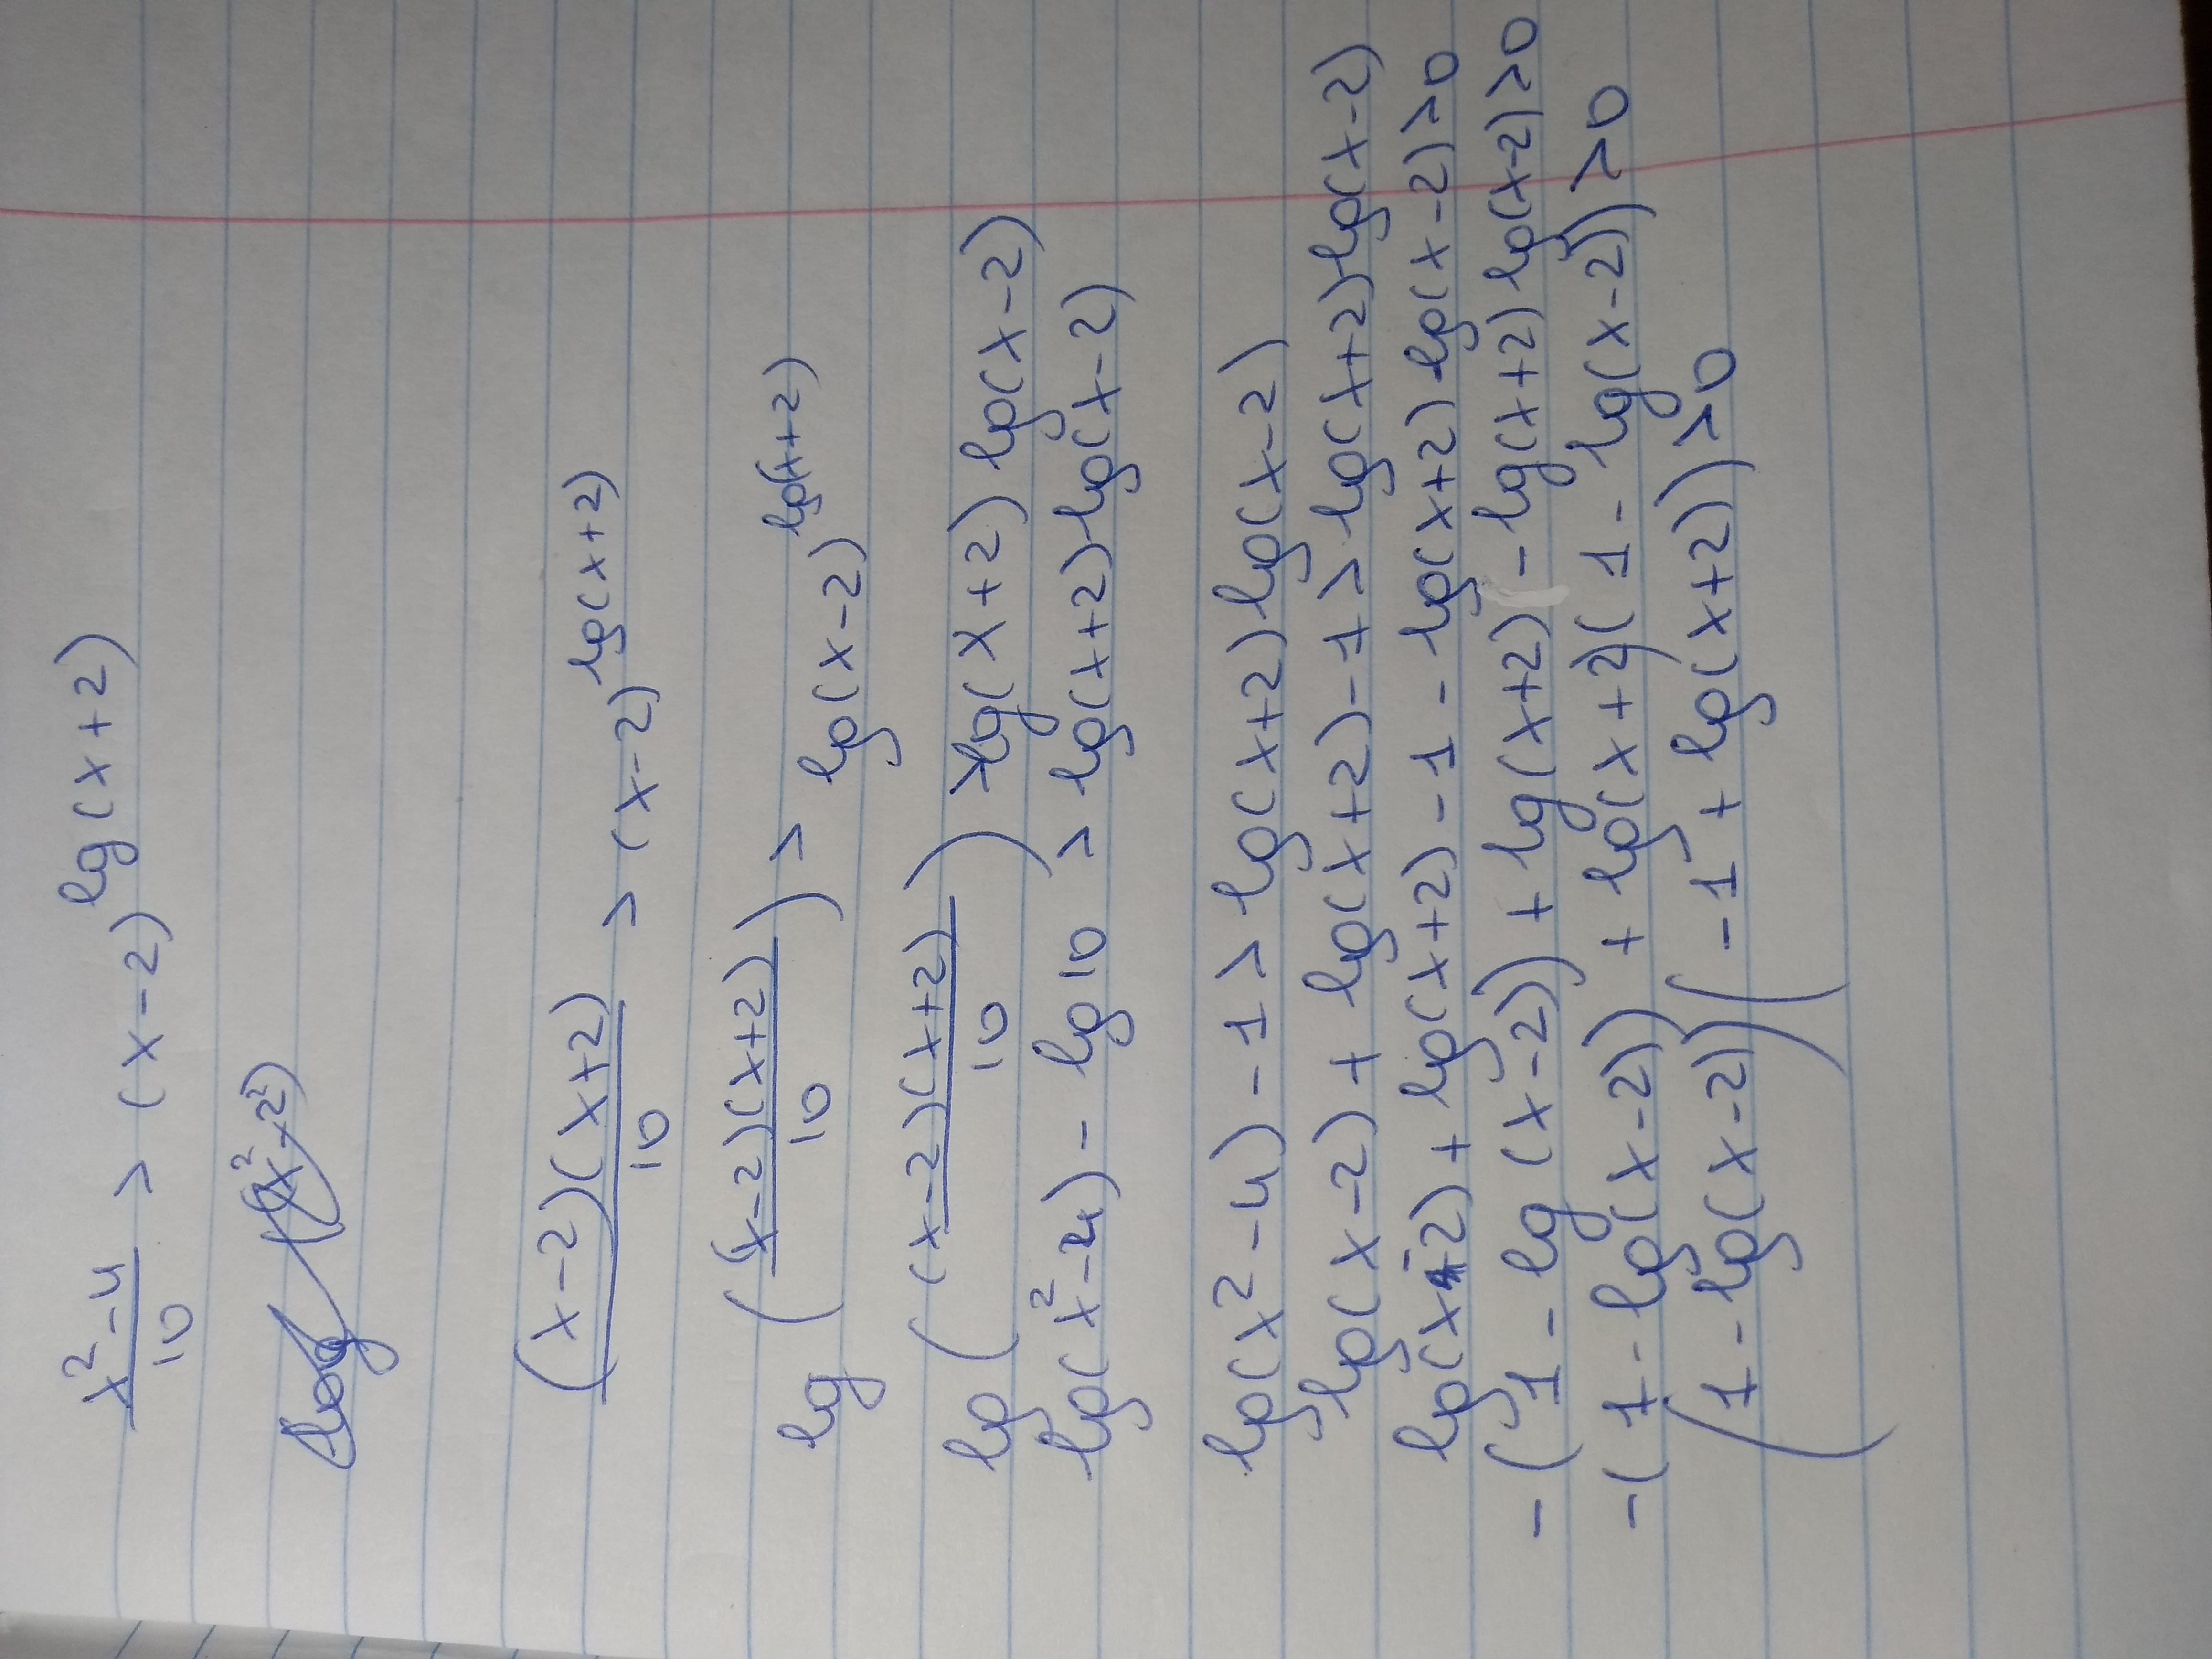 (x²-4)/10 > (x-2)^lg(x+2)
((x-2)(x+2))/10 > (x-2)^lg(x+2)
lg((x-2)(x+2)/10) > lg(x-2)^lg(x+2)
lg((x-2)(x+2)/10) > lg(x+2) lg(x-2)
lg(x²-4) - lg 10 > lg(x+2) lg(x-2)
lg(x²-4) - 1 > lg(x+2) lg(x-2)
lg(x-2) + lg(x+2) - 1 > lg(x+2) lg(x-2)
lg(x-2) + lg(x+2) - 1 - lg(x+2) lg(x-2) > 0
-(1 - lg(x-2)) + lg(x+2) - lg(x+2) lg(x-2) > 0
-(1 - lg(x-2)) + lg(x+2)(1 - lg(x-2)) > 0
(1 - lg(x-2))(-1 + lg(x+2)) > 0